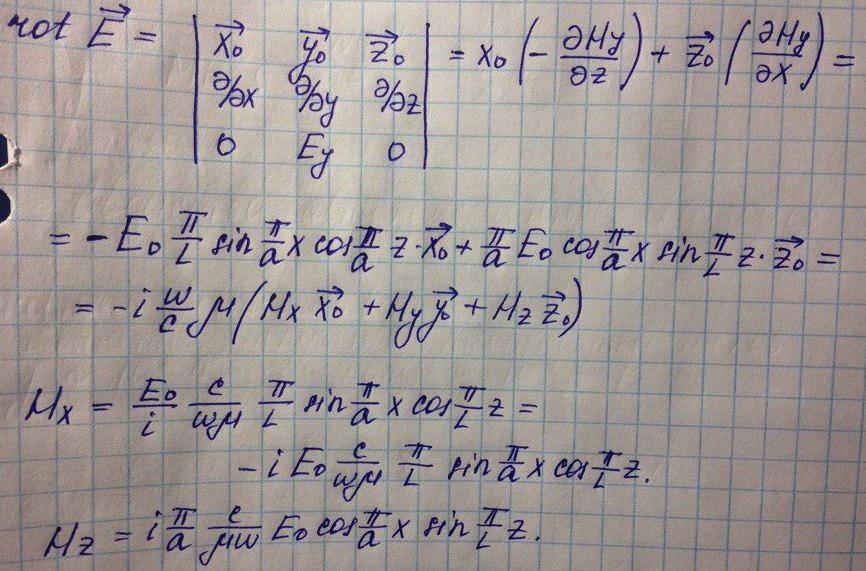 rot E⃗ = | x⃗₀ y⃗₀ z⃗₀ | = x₀ (− ∂Hy/∂z) + z⃗₀ (∂Hy/∂x) =
∂/∂x ∂/∂y ∂/∂z
0 Ey 0
= − E₀ π/L sin π/a x cos π/a z · x⃗₀ + π/a E₀ cos π/a x sin π/L z · z⃗₀ =
= − i ω/c μ (Hx x⃗₀ + Hy y⃗₀ + Hz z⃗₀)
Hx = E₀/i c/ωμ π/L sin π/a x cos π/L z =
− i E₀ c/ωμ π/L sin π/a x cos π/L z.
Hz = i π/a c/μω E₀ cos π/a x sin π/L z.